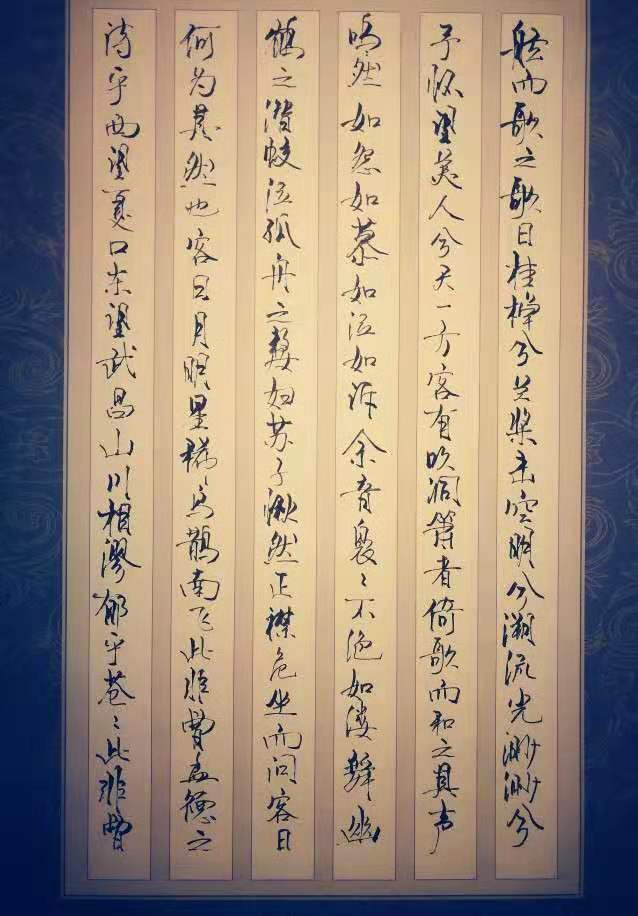 舷而歌之歌曰桂棹兮兰桨击空明兮溯流光渺渺兮
予怀望美人兮天一方客有吹洞箫者倚歌而和之其声
呜然如怨如慕如泣如诉余音袅々不绝如缕舞幽
壑之潜蛟泣孤舟之嫠妇苏子愀然正襟危坐而问客曰
何为其然也客曰月明星稀乌鹊南飞此非曹孟德之
诗乎西望夏口东望武昌山川相缪郁乎苍々此非曹